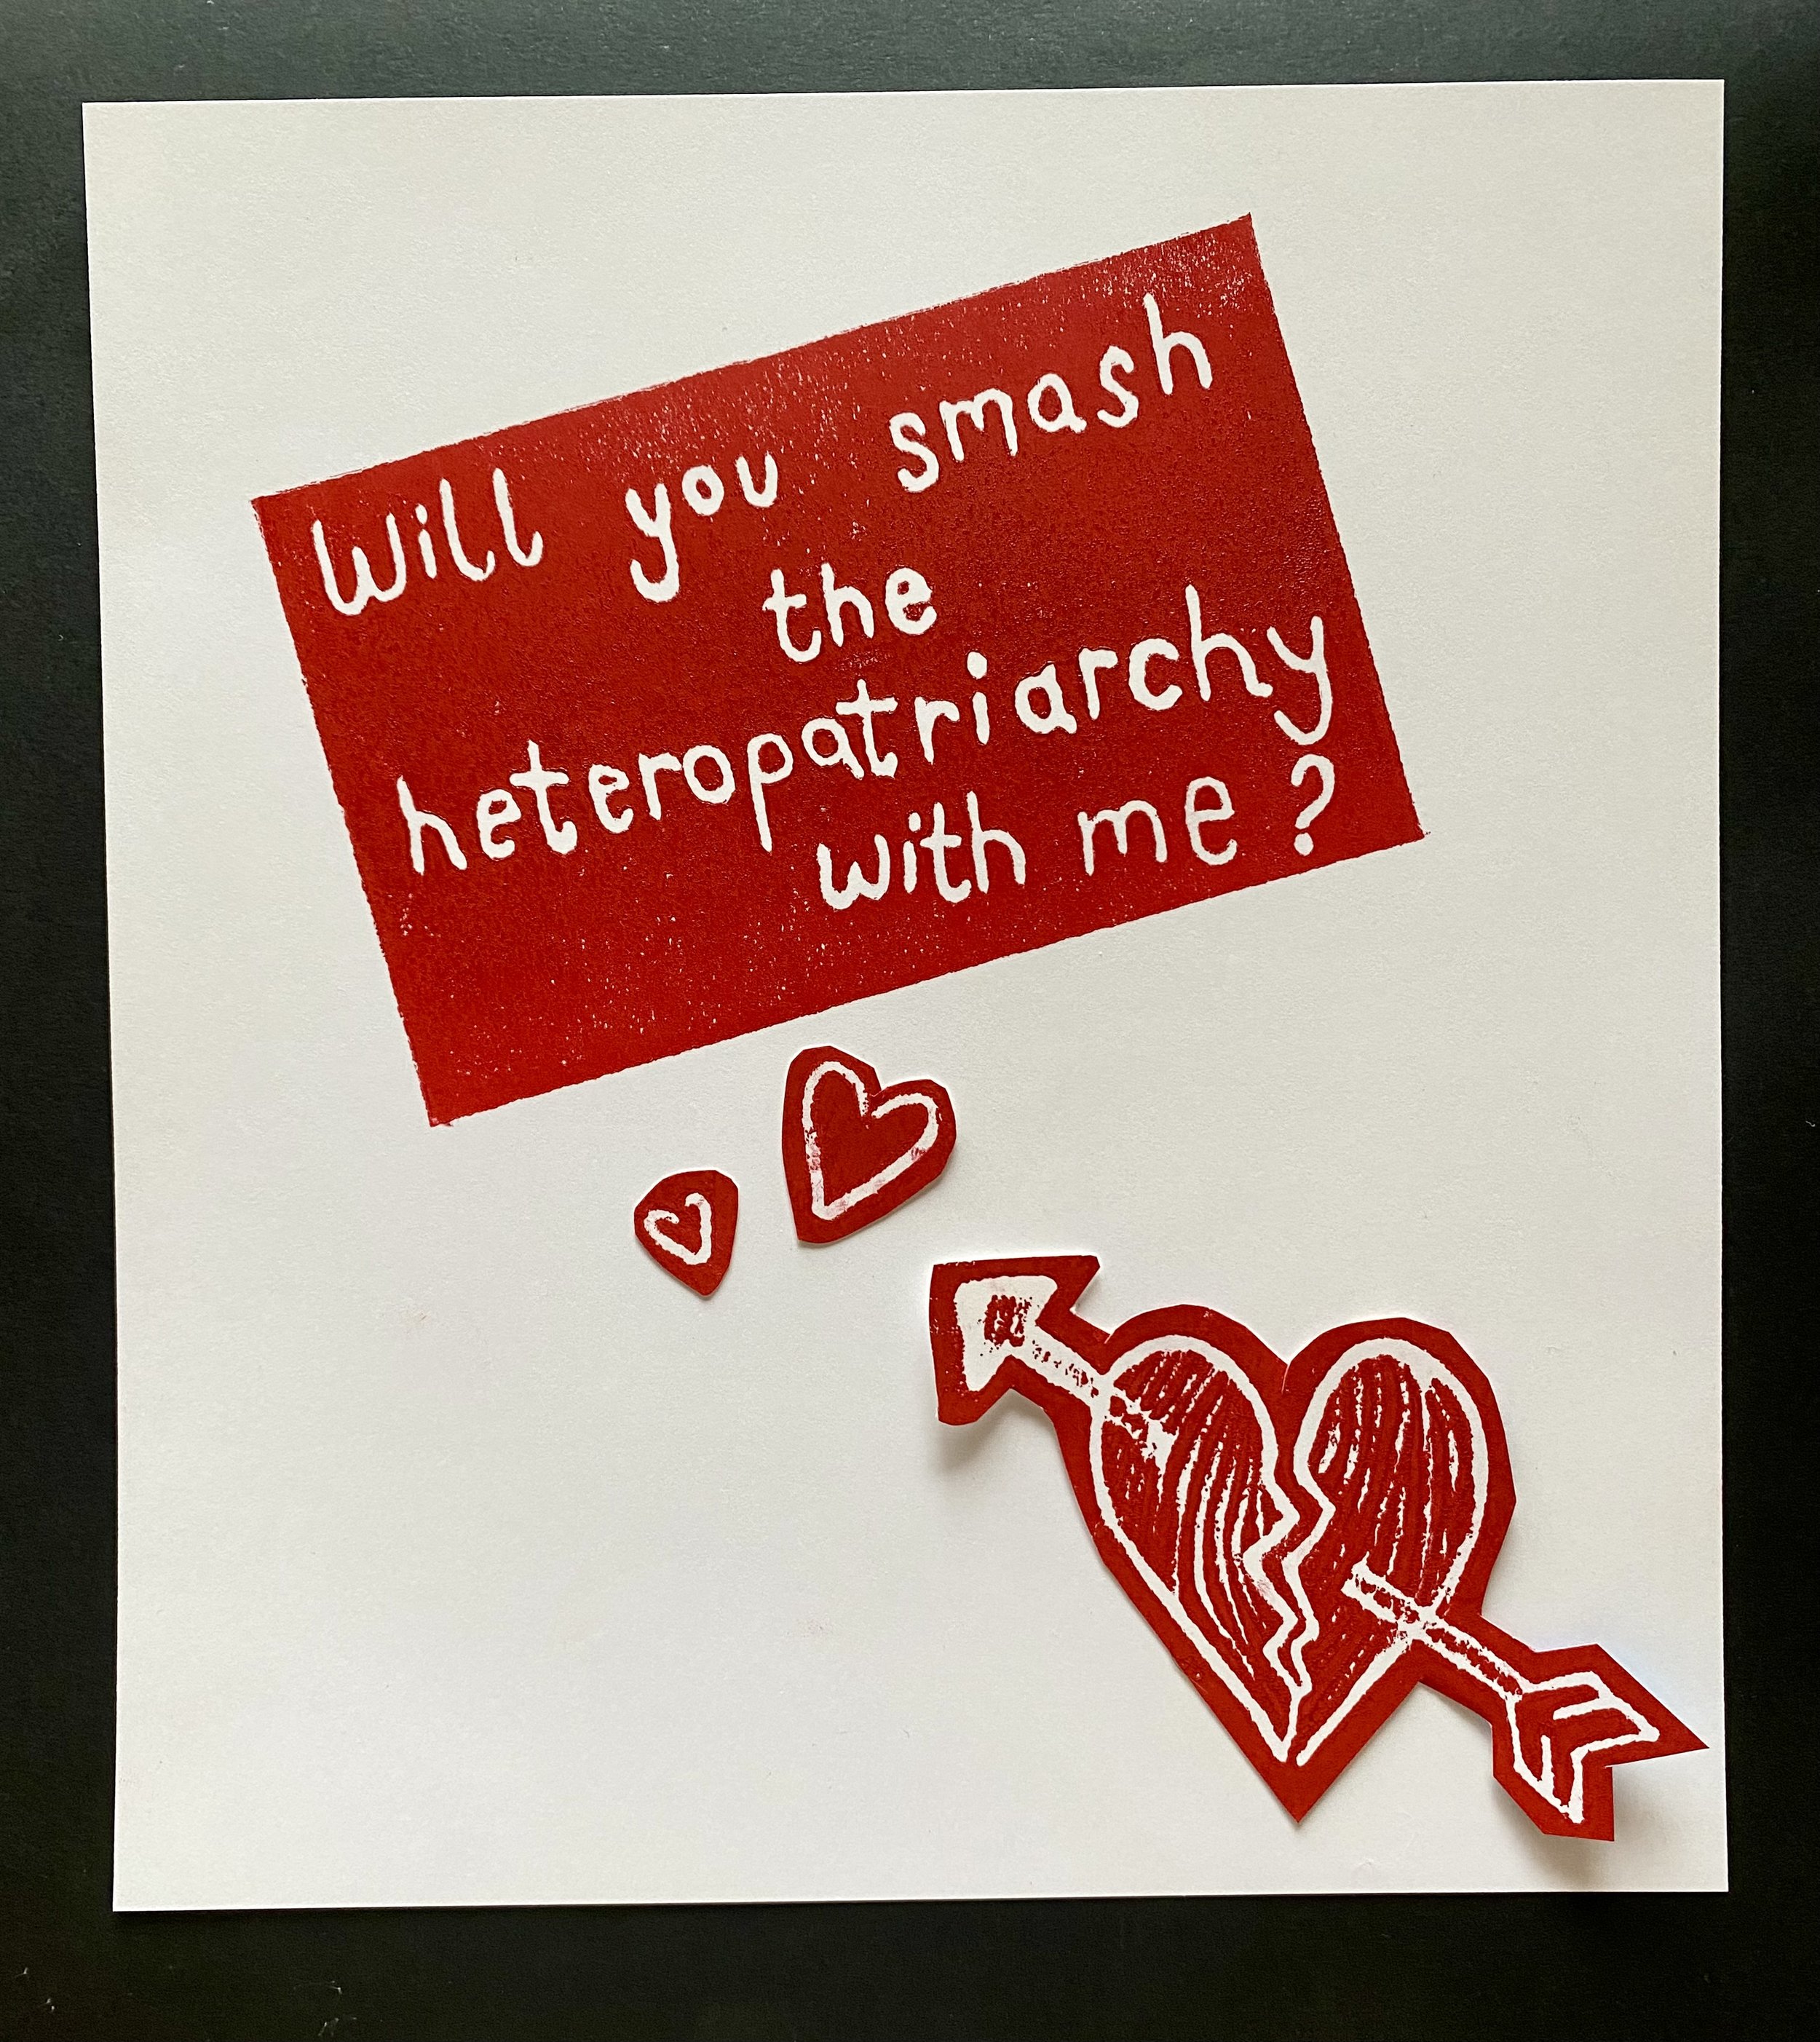 Will you smash
the
heteropatriarchy
with me?